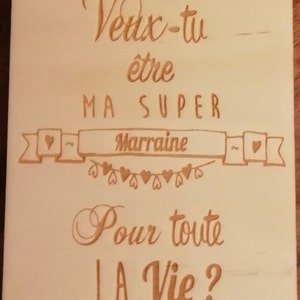 Veux-tu
être
MA SUPER
~ Marraine ~
Pour toute
LA Vie ?